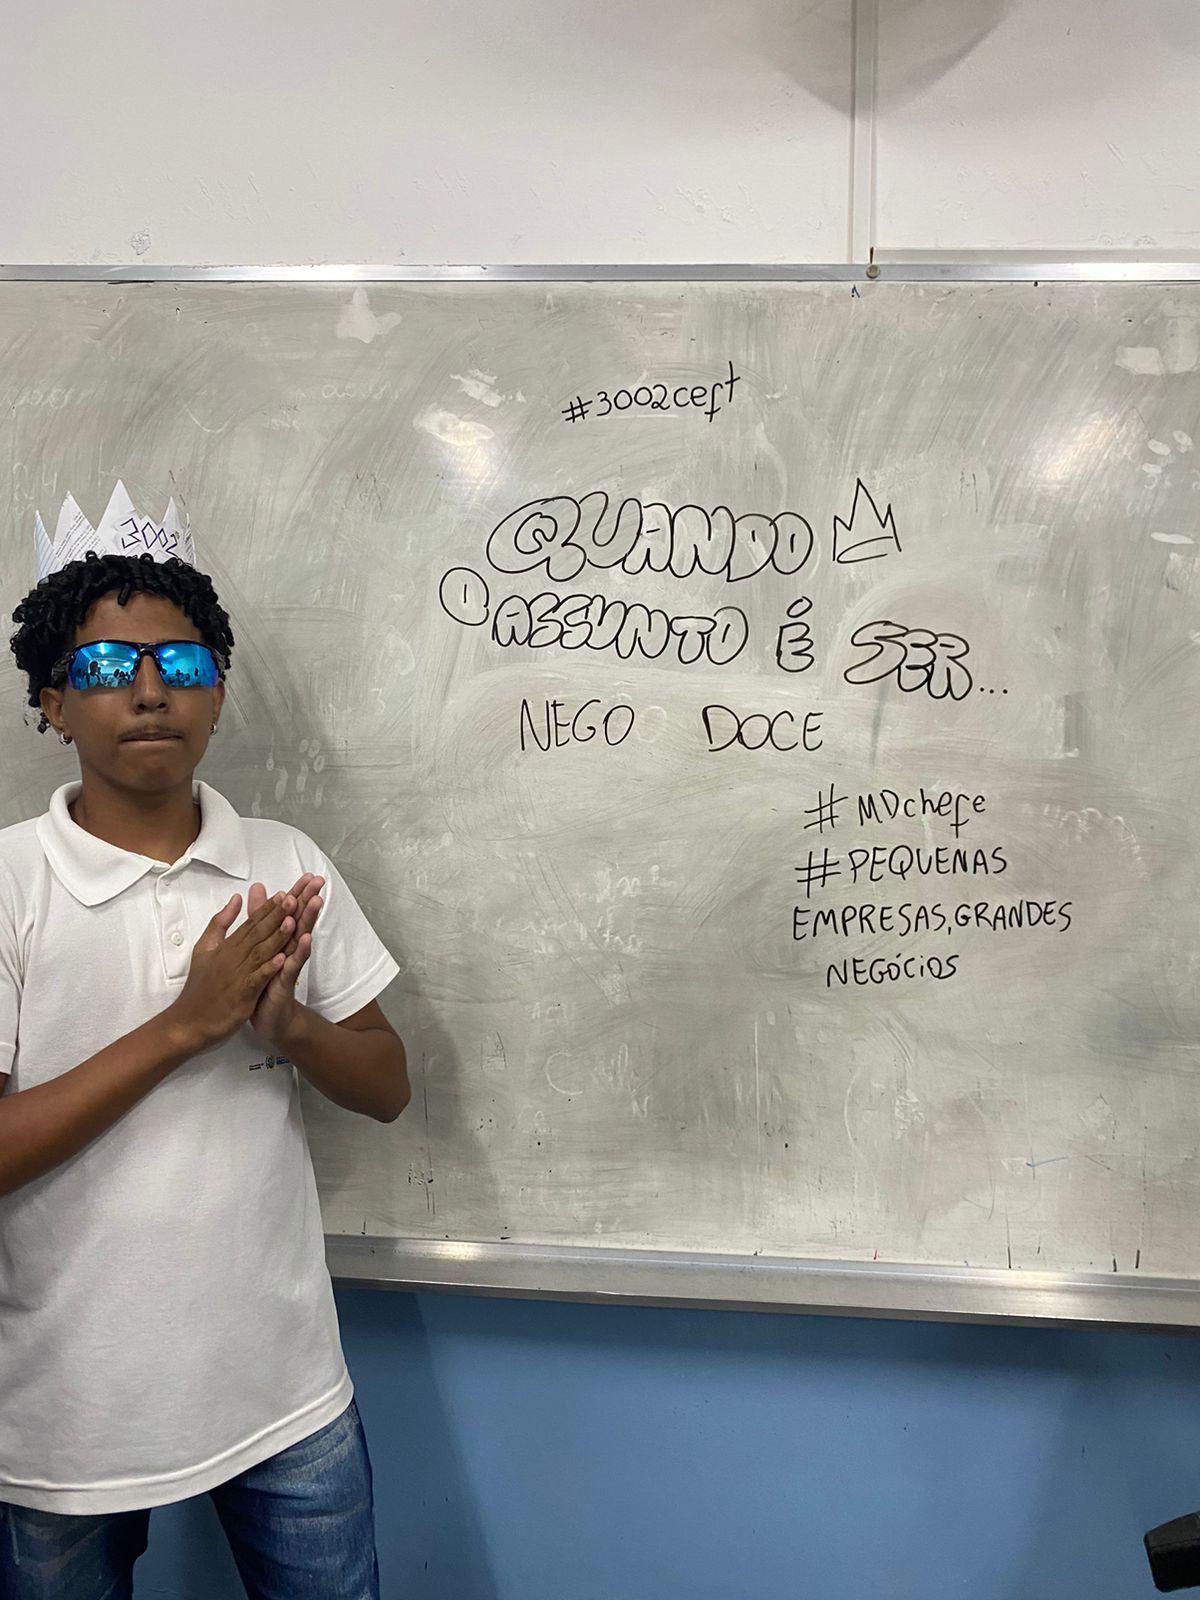 #3002ceft
QUANDO
O ASSUNTO É SER...
NEGO DOCE
#MDchefe
#PEQUENAS
EMPRESAS, GRANDES
NEGÓCIOS
3002